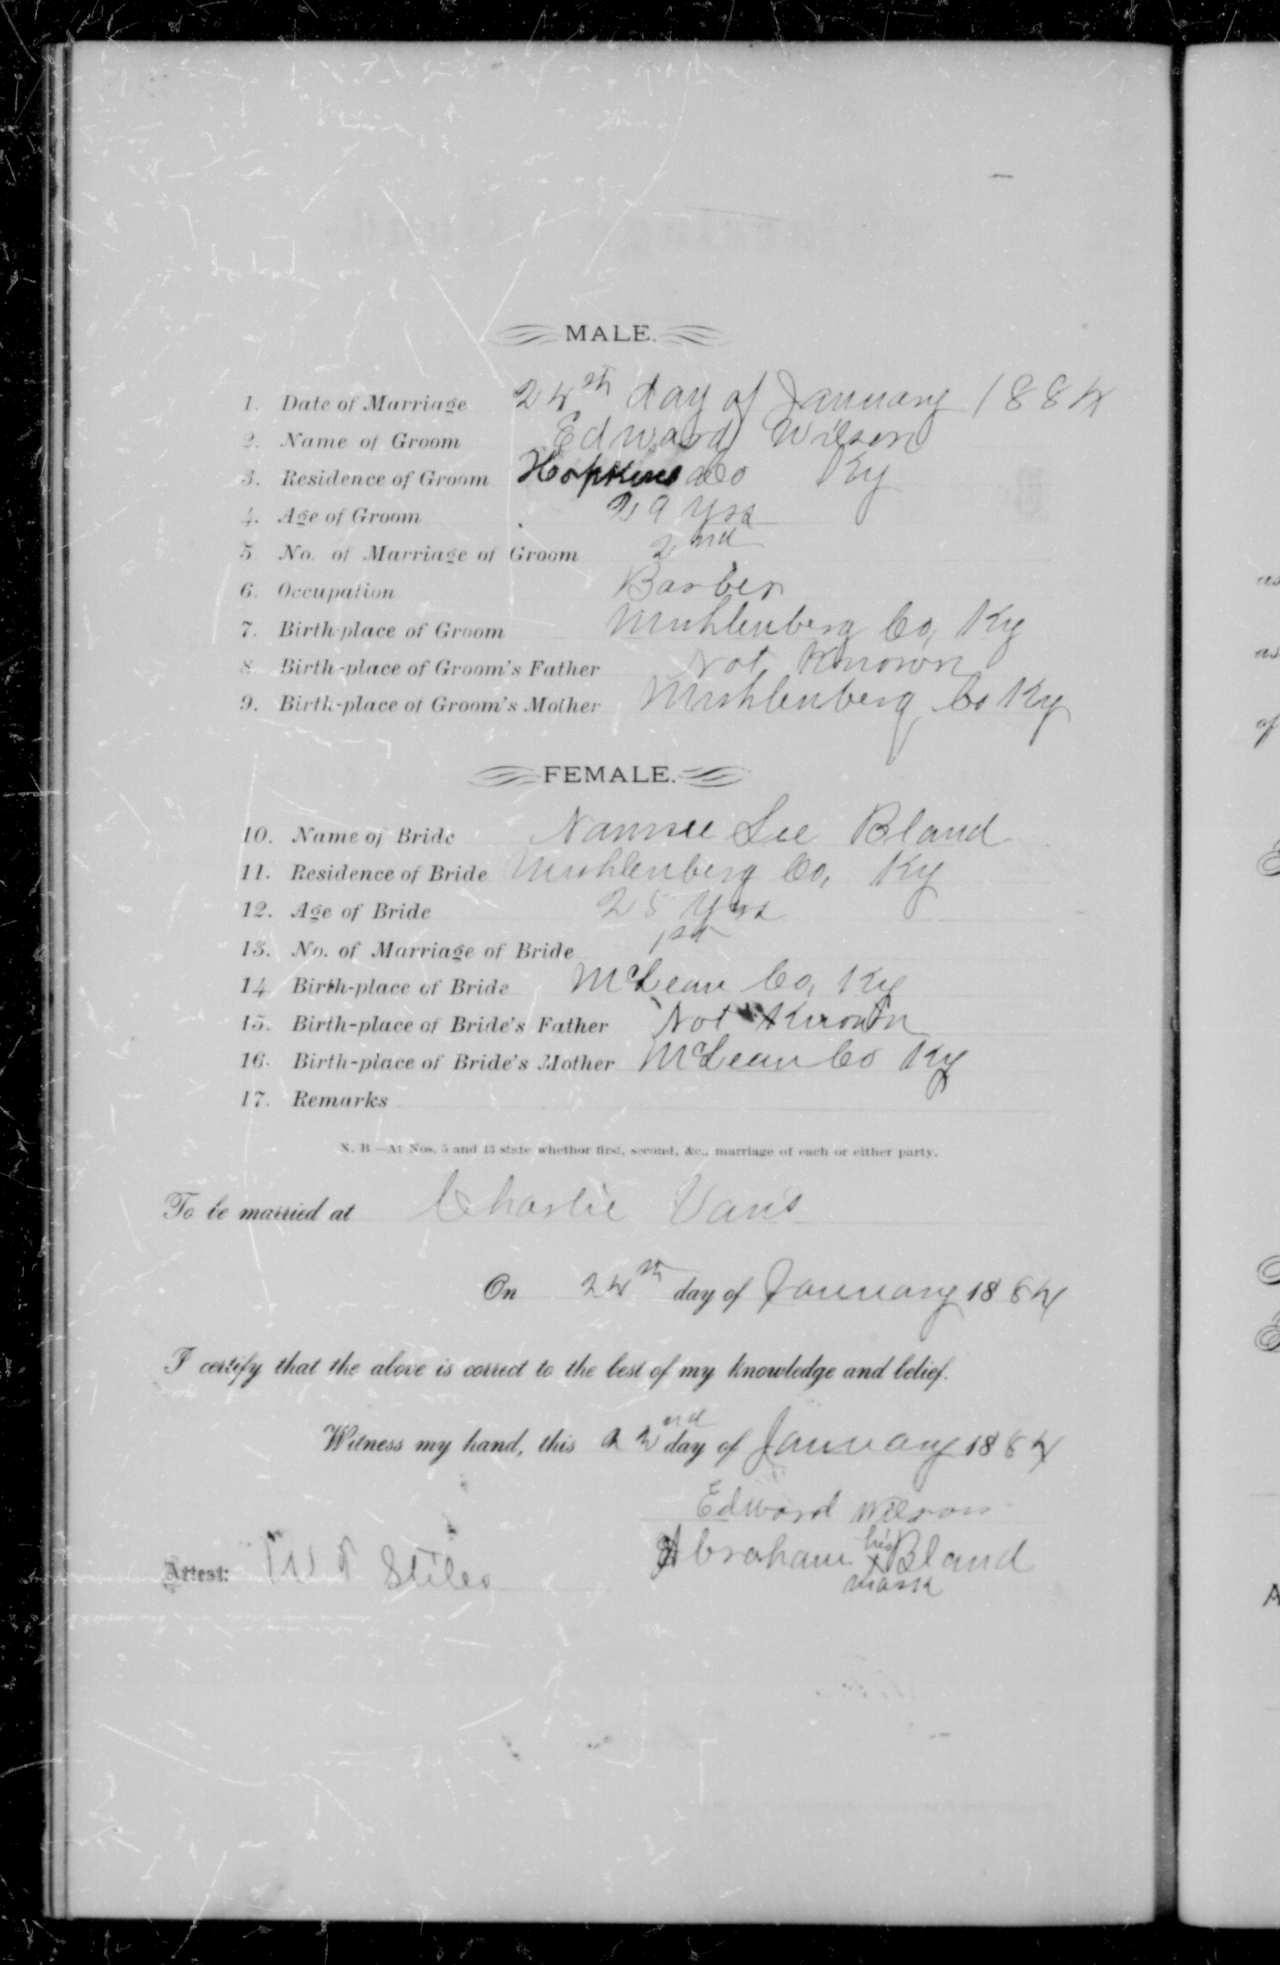 MALE.
1. Date of Marriage 24th day of January 1884
2. Name of Groom Edward Wilson
3. Residence of Groom Hopkins Co Ky
4. Age of Groom 29 Yrs
5 No. of Marriage of Groom 2nd
6. Occupation Barber
7. Birth-place of Groom Muhlenberg Co, Ky
8. Birth-place of Groom's Father Not Known
9. Birth-place of Groom's Mother Muhlenberg Co Ky
FEMALE.
10. Name of Bride Nannie Lee Bland
11. Residence of Bride Muhlenberg Co, Ky
12. Age of Bride 25 Yrs
13. No. of Marriage of Bride 1st
14 Birth-place of Bride McLean Co, Ky
15. Birth-place of Bride's Father Not Known
16. Birth-place of Bride's Mother McLean Co Ky
17. Remarks
N. B—At Nos. 5 and 13 state whethor first, second, &c., marriage of each or either party.
To be married at Charlie Van's
On 24th day of January 1884
I certify that the above is correct to the best of my knowledge and belief.
Witness my hand, this 22nd day of January 1884
Edward Wilson
Abraham his X mark Bland
Attest: Stiles